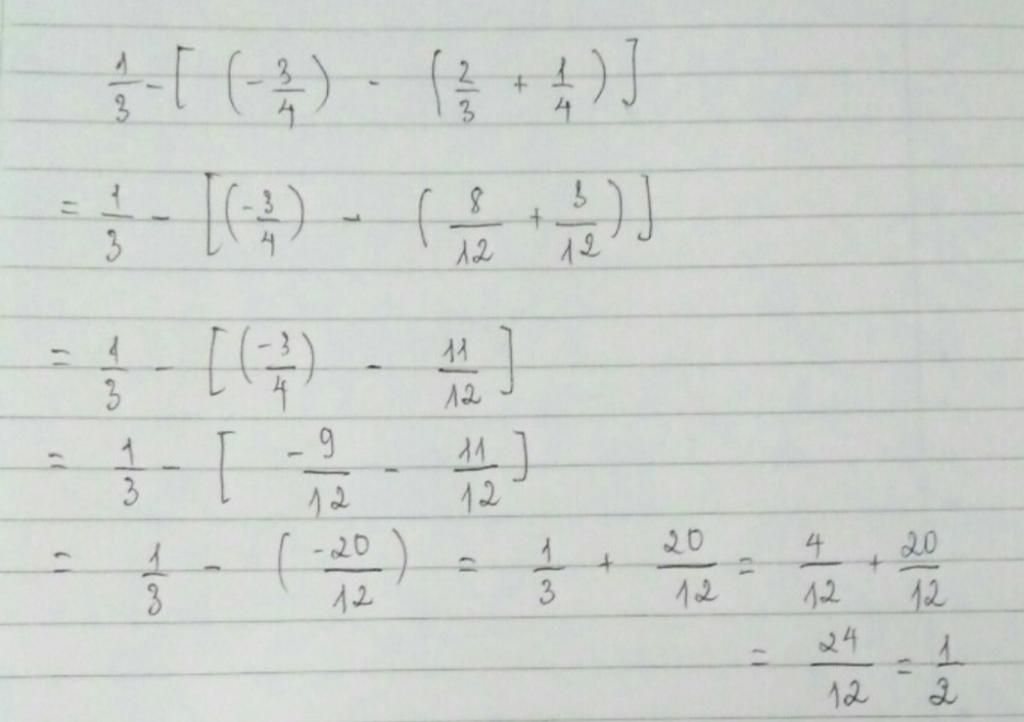 1/3 - [ (-3/4) - (2/3 + 1/4) ]
= 1/3 - [ (-3/4) - (8/12 + 3/12) ]
= 1/3 - [ (-3/4) - 11/12 ]
= 1/3 - [ -9/12 - 11/12 ]
= 1/3 - (-20/12) = 1/3 + 20/12 = 4/12 + 20/12
= 24/12 = 1/2